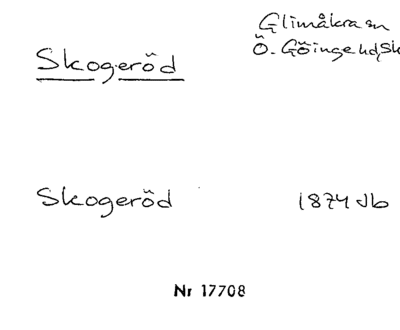 Glimåkra sn
Skogeröd
Ö. Göinge hd, Sk
Skogeröd
1874 Jb
Nr 17708